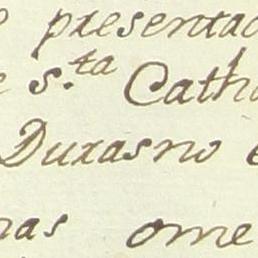 presentad
s.ta Catha
Durasno
nas ome